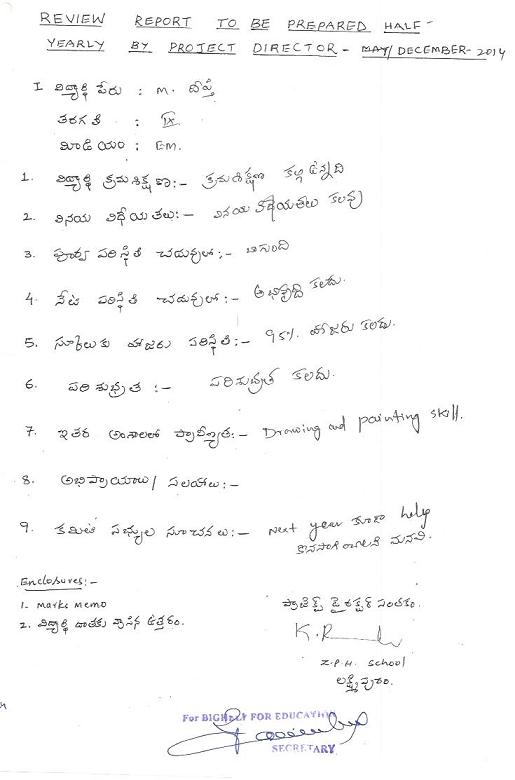 REVIEW REPORT TO BE PREPARED HALF-
YEARLY BY PROJECT DIRECTOR - MAY/DECEMBER-2014
I విద్యార్థి పేరు : M. దీప్తి
తరగతి : IX
మీడియం : E.M.
1. విద్యార్థి క్రమశిక్షణ:- క్రమశిక్షణ కల్గి ఉన్నది
2. వినయ విధేయతలు:- వినయ విధేయతలు కలవు
3. పూర్వ పరిస్థితి చదువులో:- బాగుంది
4. నేటి పరిస్థితి చదువులో:- అభివృద్ధి కలదు.
5. స్కూలుకు హాజరు పరిస్థితి:- 95% హాజరు కలదు.
6. పరిశుభ్రత :- పరిశుభ్రత కలదు.
7. ఇతర అంశాలలో ప్రావీణ్యత:- Drawing and painting skill.
8. అభిప్రాయాలు/ సలహాలు:-
9. కమిటి సభ్యుల సూచనలు:- Next year కూడా help
కొనసాగించాలని మనవి.
Enclosures:-
1. Marks Memo
2. విద్యార్థి దాతకు వ్రాసిన ఉత్తరం.
ప్రాజెక్ట్ డైరక్టర్ సంతకం.
Z.P.H. School
లక్ష్మీపురం.
For BIGHELP FOR EDUCATION
SECRETARY